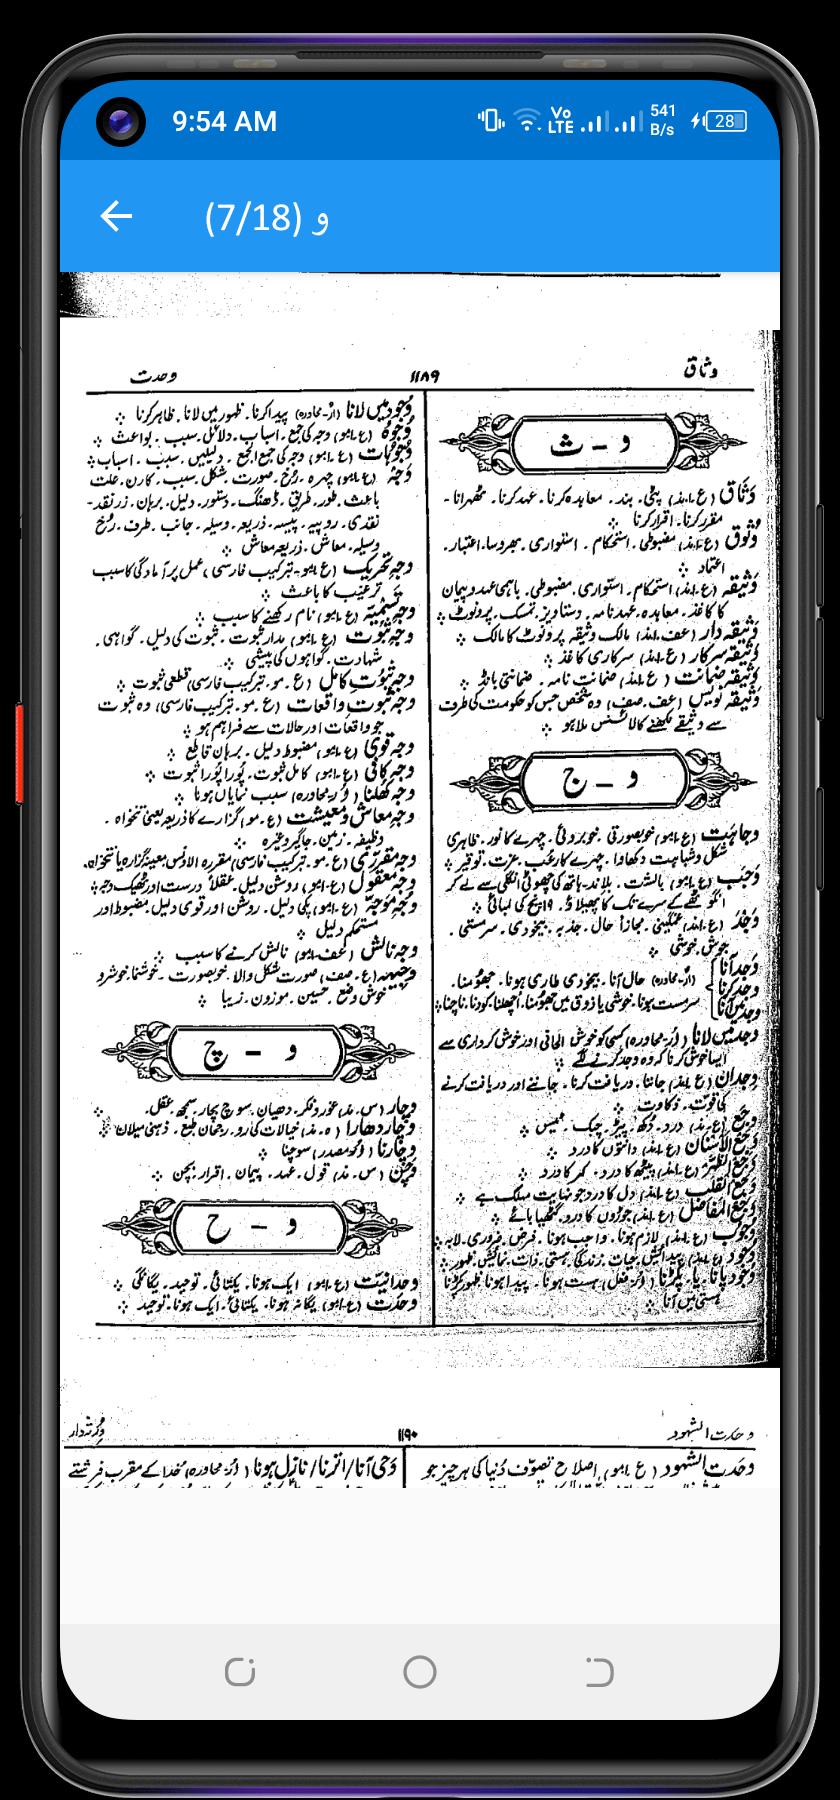 9:54 AM
Vo LTE
541 B/s
28
و (7/18)
وثاق
۱۱۸۹
وحدت
و - ث
وَثاق (ع۔امذ) پٹی۔ بند۔ معاہدہ کرنا۔ عہد کرنا۔ ٹھہرانا۔
مقرر کرنا۔ اقرار کرنا
وُثوق (ع۔امذ) مضبوطی۔ استحکام۔ استواری۔ بھروسا۔ اعتبار۔
اعتماد
وَثیقہ (ع۔امذ) استحکام۔ استواری۔ مضبوطی۔ باہمی عہد و پیمان
کا کاغذ۔ معاہدہ۔ عہد نامہ۔ دستاویز۔ تمسک۔ پرونوٹ
وَثیقہ دار (عف۔امذ) مالک وثیقہ۔ پرونوٹ کا مالک
وَثیقہ سرکار (ع۔امذ) سرکاری کاغذ
وَثیقہ ضمانت (ع۔امذ) ضمانت نامہ۔ ضمانتی بانڈ
وَثیقہ نویس (عف۔صف) وہ شخص جس کو حکومت کی طرف
سے وثیقے لکھنے کا لائسنس ملا ہو
و - ج
وجاہت (ع۔امو) خوبصورتی۔ خوبروئی۔ چہرے کا نور۔ ظاہری
شکل و شباہت۔ دکھاوا۔ چہرے کا رعب۔ عزت۔ توقیر
وَجَب (ع۔امو) بالشت۔ بلاند۔ ہاتھ کی چھوٹی انگلی سے لے کر
انگوٹھے کے سرے تک کا پھیلاؤ۔ ۹ انچ کی لمبائی
وَجْد (ع۔امذ) غمگینی۔ مجازاً حال۔ جذبہ۔ بیخودی۔ سرمستی۔
جوش۔ خوشی
وَجد آنا
وَجد کرنا
وَجد میں آنا
(ار۔محاورہ) حال آنا۔ بیخودی طاری ہونا۔ جھومنا۔
سرمست ہونا۔ خوشی یا ذوق میں جھومنا۔ اچھلنا۔ کودنا۔ ناچنا
وجد میں لانا (ار۔محاورہ) کسی کو خوش الحانی اور خوش کرداری سے
ایسا خوش کرنا کہ وہ وجد کرنے لگے
وِجدان (ع۔امذ) جاننا۔ دریافت کرنا۔ جاننے اور دریافت کرنے
کی قوت۔ ذکاوت
وَجع (ع۔مذ) درد۔ دُکھ۔ پیڑ۔ چبک۔ ٹیس
وَجع الاَسنان (ع۔امذ) دانتوں کا درد
وَجع الظَّہر (ع۔امذ) پیٹھ کا درد۔ کمر کا درد
وَجع القلب (ع۔امذ) دل کا درد جو نہایت مہلک ہے
وَجع المفاصل (ع۔امذ) جوڑوں کا درد۔ گٹھیا بائے
وُجوب (ع۔امذ) لازم ہونا۔ واجب ہونا۔ فرض۔ ضروری۔ لابد
وُجود (ع۔امذ) پیدائش۔ حیات۔ زندگی۔ ہستی۔ ذات۔ نمائش۔ ظہور
وُجود پانا۔ یا۔ پکڑنا (ار۔فعل) ہست ہونا۔ پیدا ہونا۔ ظہور کرنا
ہستی میں آنا
وُجود میں لانا (ار۔محاورہ) پیدا کرنا۔ ظہور میں لانا۔ ظاہر کرنا
وُجُوہ (ع۔امو) وجہ کی جمع۔ اسباب۔ دلائل۔ سبب۔ بواعث
وُجُوہات (ع۔امو) وجہ کی جمع الجمع۔ دلیلیں۔ سبب۔ اسباب
وَجْہ (ع۔امو) چہرہ۔ رُخ۔ صورت۔ شکل۔ سبب۔ کارن۔ علت
باعث۔ طور۔ طریق۔ ڈھنگ۔ دستور۔ دلیل۔ برہان۔ زر نقد۔
نقدی۔ روپیہ۔ پیسہ۔ ذریعہ۔ وسیلہ۔ جانب۔ طرف۔ رُخ
وسیلہ۔ معاش۔ ذریعہ معاش
وجہِ تحریک (ع۔امو۔ترکیب فارسی) عمل پر آمادگی کا سبب
ترغیب کا باعث
وجہِ تسمیہ (ع۔امو) نام رکھنے کا سبب
وجہِ ثبوت (ع۔امو) مدار ثبوت۔ ثبوت کی دلیل۔ گواہی۔
شہادت۔ گواہوں کی پیشی
وجہِ ثبوتِ کامل (ع۔مو۔ترکیب فارسی) قطعی ثبوت
وجہِ ثبوتِ واقعات (ع۔مو۔ترکیب فارسی) وہ ثبوت
جو واقعات اور حالات سے فراہم ہو
وجہِ قوی (ع۔امو) مضبوط دلیل۔ برہان قاطع
وجہِ کافی (ع۔امو) کامل ثبوت۔ پُورا پُورا ثبوت
وجہ کھلنا (ار۔محاورہ) سبب نمایاں ہونا
وجہِ معاش و معیشت (ع۔مو) گزارے کا ذریعہ یعنی تنخواہ۔
وظیفہ۔ زمین۔ جاگیر وغیرہ
وجہِ مقرری (ع۔مو۔ترکیب فارسی) مقررہ الاؤنس۔ معینہ گزارہ یا تنخواہ
وجہِ معقول (ع۔امو) روشن دلیل۔ عقلاً درست اور ٹھیک وجہ
وجہِ موجّہ (ع۔امو) پکی دلیل۔ روشن اور قوی دلیل۔ مضبوط اور
مستحکم دلیل
وجہِ نالش (عف۔امو) نالش کرنے کا سبب
وجیہہ (ع۔صف) صورت شکل والا۔ خوبصورت۔ خوشنما۔ خوشرو
خوش وضع۔ حسین۔ موزون۔ زیبا
و - چ
وچار (س۔مذ) غور و فکر۔ دھیان۔ سوچ بچار۔ سمجھ۔ عقل۔
وچار دھارا (ہ۔مذ) خیالات کی رو۔ رجحان طبع۔ ذہنی میلان
وچارنا (ار۔مصدر) سوچنا
وَچَن (س۔مذ) قول۔ عہد۔ پیمان۔ اقرار۔ بچن
و - ح
وحدانیت (ع۔امو) ایک ہونا۔ یکتائی۔ توحید۔ یگانگی
وحدت (ع۔امو) یگانہ ہونا۔ یکتائی۔ ایک ہونا۔ توحید
وحدت الشہود
۱۱۹۰
وحدت الشہود (ع۔امو) اصلاح تصوّف دُنیا کی ہر چیز جو
وَحی آنا/اترنا/نازل ہونا (ار۔محاورہ) خدا کے مقرب فرشتے